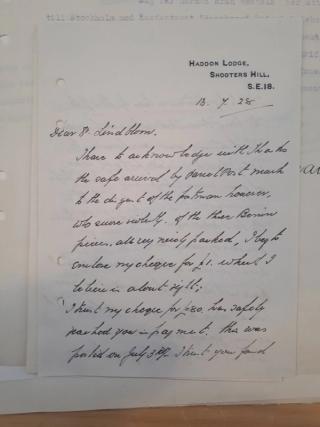 till Stockholm med
HADDON LODGE,
SHOOTERS HILL,
S.E.18.
13. 7. 28
Dear Dr Lindblom.
I have to acknowledge with thanks
the safe arrival by parcel post much
to the disgust of the postman however,
who swore violently. of the three Benin
pieces, all very nicely packed, I beg to
enclose my cheque for £1. which I
believe is about right;
I trust my cheque for £80. has safely
reached you in payment. this was
posted on July 3rd. I trust you found